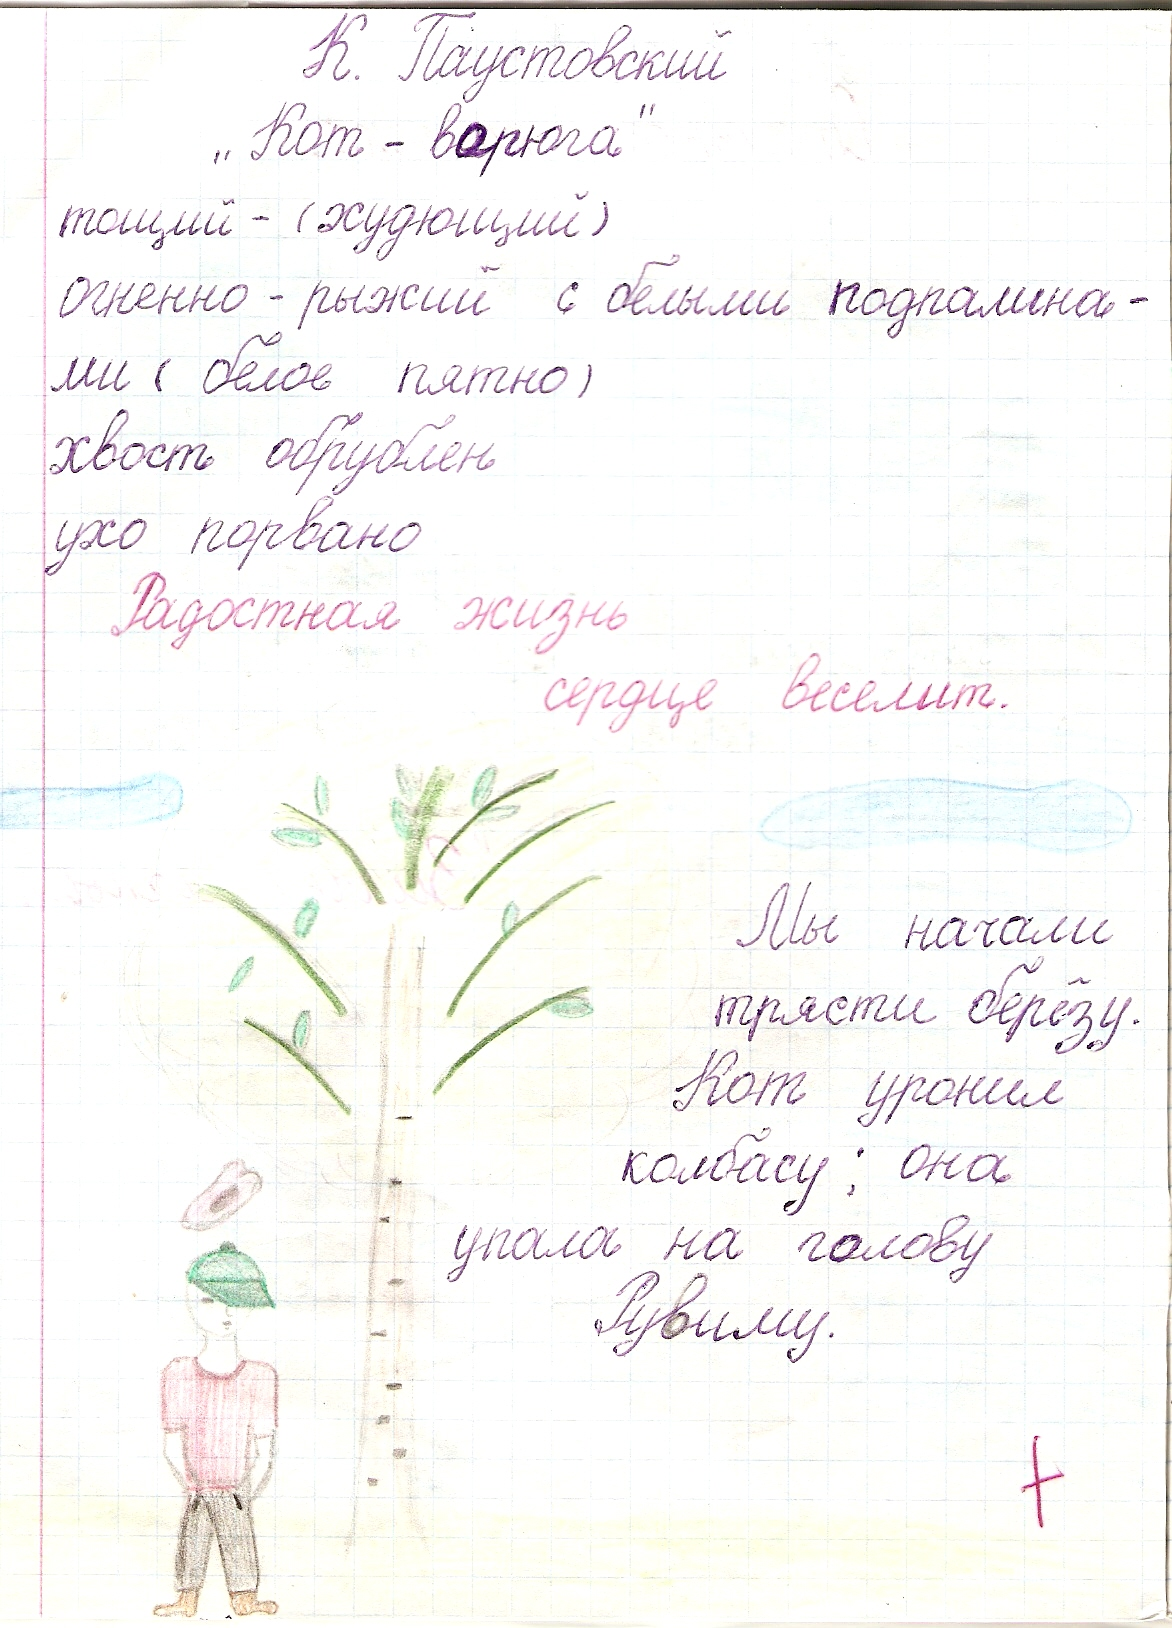 К. Паустовский
„Кот - ворюга"
тощий - (худющий)
огненно - рыжий с белыми подпалина-
ми (белое пятно)
хвост обрублен
ухо порвано
Радостная жизнь
сердце веселит.
Мы начали
трясти берёзу.
Кот уронил
колбасу; она
упала на голову
Рувиму.